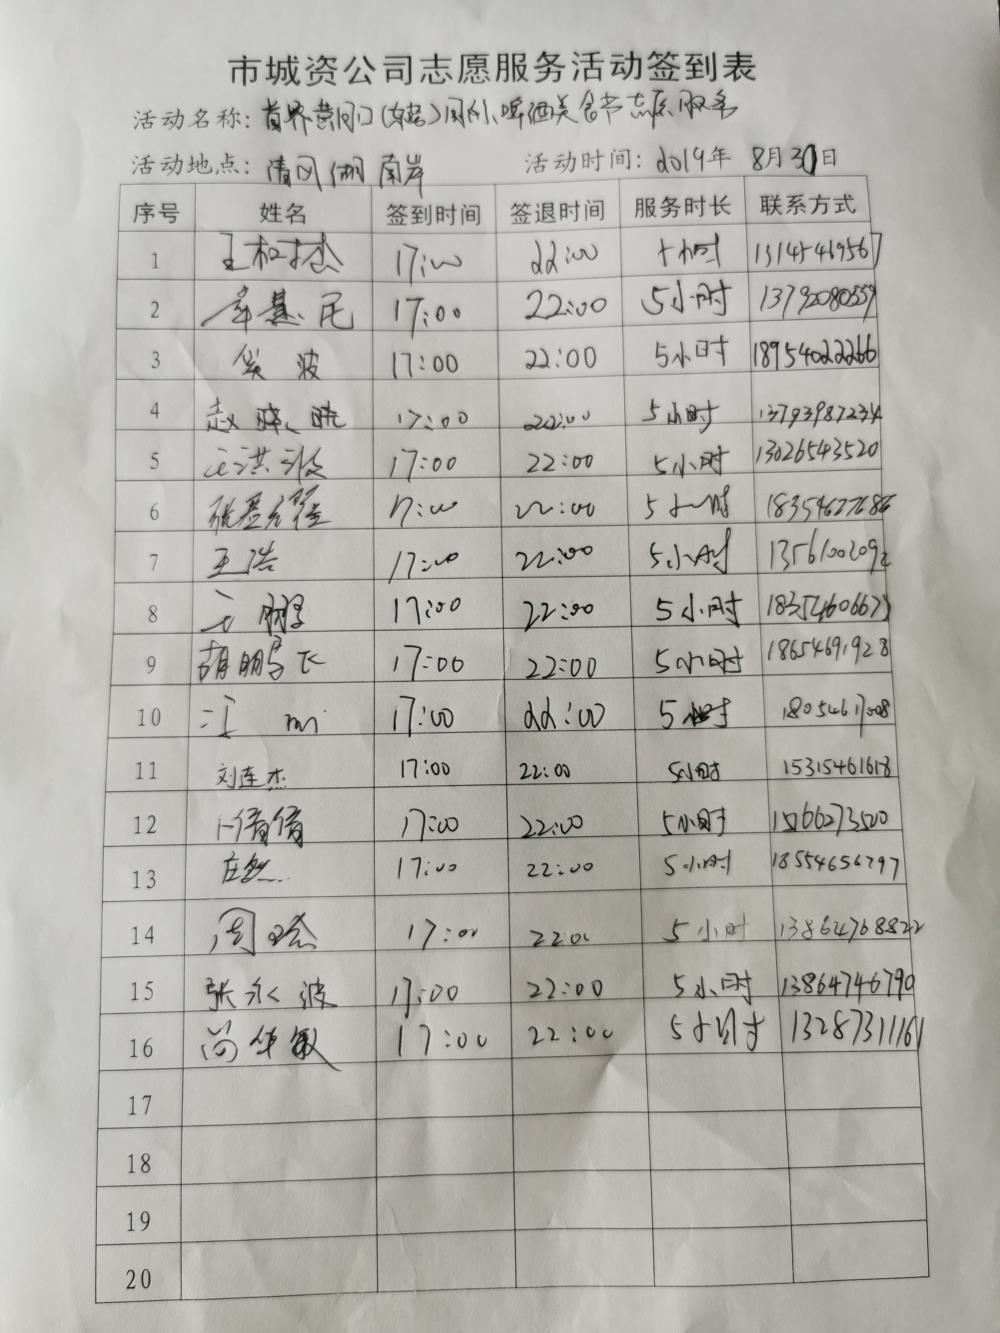 市城资公司志愿服务活动签到表
活动名称: 首界黄河口(东营)国际啤酒美食节志愿服务
活动地点: 清风湖南岸 活动时间: 2019年 8月30日
序号 姓名 签到时间 签退时间 服务时长 联系方式
1 17:00 22:00 5小时
2 17:00 22:00 5小时 13792080559
3 波 17:00 22:00 5小时 18954022266
4 赵晓晓 17:00 22:00 5小时 13793987234
5 王洪波 17:00 22:00 5小时 13026543520
6 17:00 22:00 5小时 18354627686
7 王浩 17:00 22:00 5小时 13561002092
8 王鹏 17:00 22:00 5小时
9 胡鹏飞 17:00 22:00 5小时 18654691928
10 汪 17:00 22:00 5小时 18054617508
11 刘连杰 17:00 22:00 5小时 15315461618
12 卜倩倩 17:00 22:00 5小时 15066273500
13 庄 17:00 22:00 5小时 18554656797
14 周 17:00 22:00 5小时 13864768822
15 张永波 17:00 22:00 5小时 13864746790
16 尚华敏 17:00 22:00 5小时 13287311161
17
18
19
20